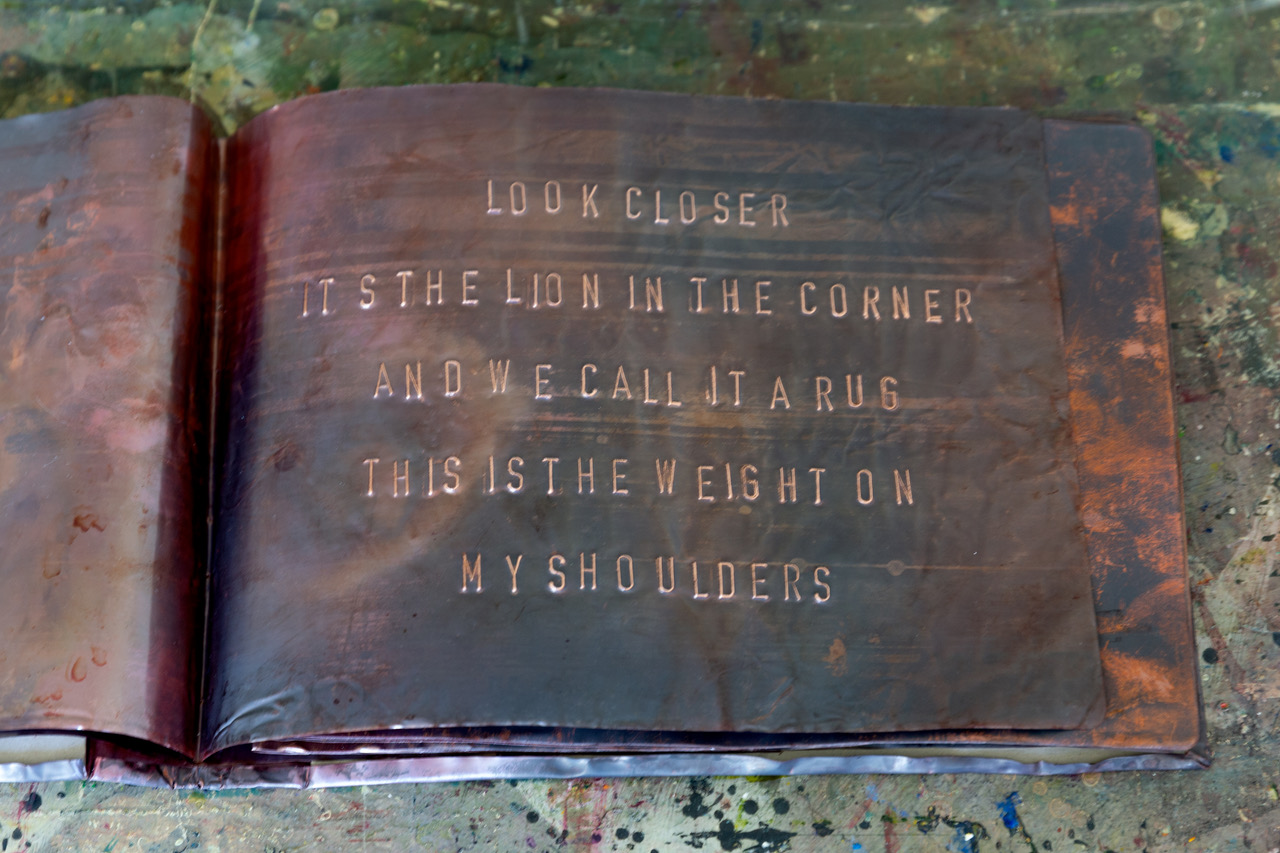 LOOK CLOSER
IT S THE LION IN THE CORNER
AND WE CALL IT A RUG
THIS IS THE WEIGHT ON
MY SHOULDERS